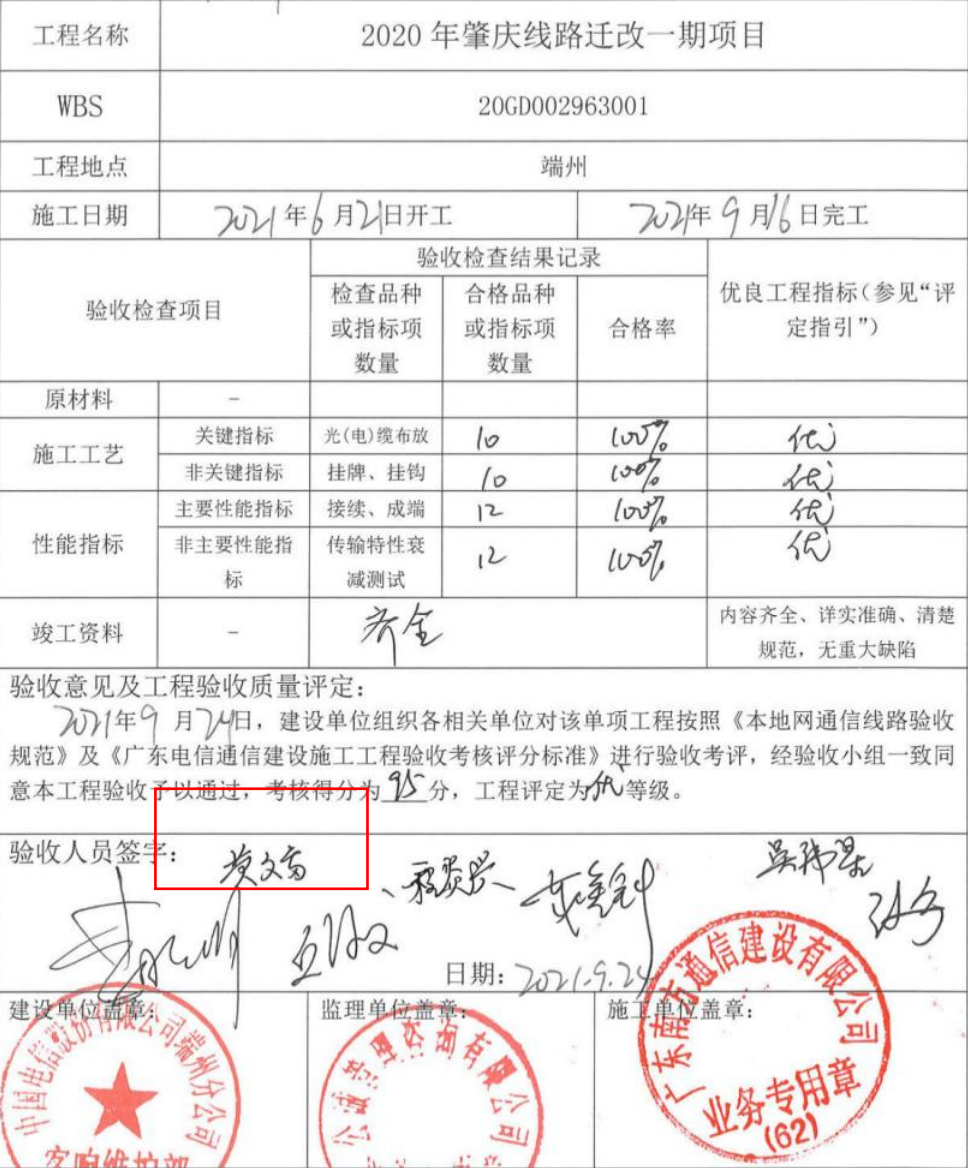 工程名称 2020 年肇庆线路迁改一期项目
WBS 20GD002963001
工程地点 端州
施工日期 2021年6月21日开工 2021年9月16日完工
验收检查项目 验收检查结果记录 优良工程指标（参见“评定指引”）
检查品种或指标项数量 合格品种或指标项数量 合格率
原材料 –
施工工艺 关键指标 光(电)缆布放 10 100% 优
非关键指标 挂牌、挂钩 10 100% 优
性能指标 主要性能指标 接续、成端 12 100% 优
非主要性能指标 传输特性衰减测试 12 100% 优
竣工资料 – 齐全 内容齐全、详实准确、清楚规范，无重大缺陷
验收意见及工程验收质量评定：
2021年9月24日，建设单位组织各相关单位对该单项工程按照《本地网通信线路验收
规范》及《广东电信通信建设施工工程验收考核评分标准》进行验收考评，经验收小组一致同
意本工程验收予以通过，考核得分为 95 分，工程评定为优等级。
验收人员签字：
日期：2021.9.24
建设单位盖章： 监理单位盖章： 施工单位盖章：
中国电信股份有限公司端州分公司
客响维护部
管理咨询有限公司
广东南方通信建设有限公司
业务专用章
(62)